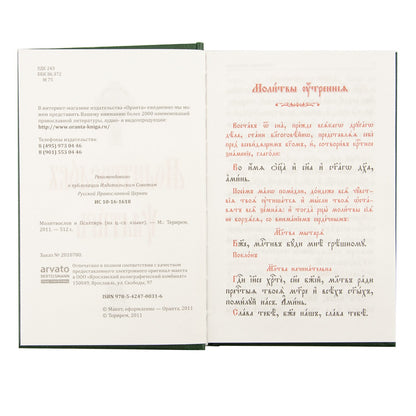 УДК 243
ББК 86.372
М 75
В интернет-магазине издательства «Оранта» ежедневно мы мо
жем представить Вашему вниманию более 2000 наименований
православной литературы, аудио- и видеопродукции:
http://www.oranta-kniga.ru/
Телефоны:
8 (495) 973 04 46
8 (901) 553 04 46
Рекомендовано
к публикации Издательским Советом
Русской Православной Церкви
ИС 10-16-1658
Молитвослов и Псалтирь (на ц-сл. языке). — М.: Терирем,
2011. — 512 с.
Заказ № 2018780.
arvato
BERTELSMANN
Отпечатано в полном соответствии с качеством
предоставленного электронного оригинал-макета
в ОАО «Ярославский полиграфический комбинат»
150049, Ярославль, ул. Свободы, 97
ISBN 978-5-4247-0031-6
© Макет, оформление — Оранта, 2011
© Терирем, 2011
Моли́твы ᲂу҆́трєннїѧ
Воста́въ ѿ сна̀, пре́жде всѧ́кагѡ дрꙋга́гѡ
дѣ́ла, ста́ни бл҃гоговѣ́йнѡ, представлѧ́ѧ себѐ
пред̾ всеви́дѧщимъ бг҃омъ, и҆, сотворѧ́ѧ крⷭ҇тное
зна́менїе, глаго́ли:
Во и҆́мѧ ѻ҆ц҃а̀ и҆ сн҃а и҆ ст҃а́гѡ дх҃а,
а҆ми́нь.
Мл҃тва мытарѧ̀
Бж҃е, млⷭ҇тивъ бꙋ́ди мнѣ̀ грѣ́шномꙋ.
Покло́нъ
Мл҃тва начина́тельна
Гдⷭ҇и і҆и҃се хрⷭ҇тѐ, сн҃е бж҃їй, мл҃твъ ра́ди
пречⷭ҇тыѧ твоеѧ̀ мт҃ре и҆ всѣ́хъ ст҃ы́хъ,
поми́лꙋй на́съ. А҆ми́нь.
Сла́ва тебѣ̀, бж҃е на́шъ, сла́ва тебѣ̀.